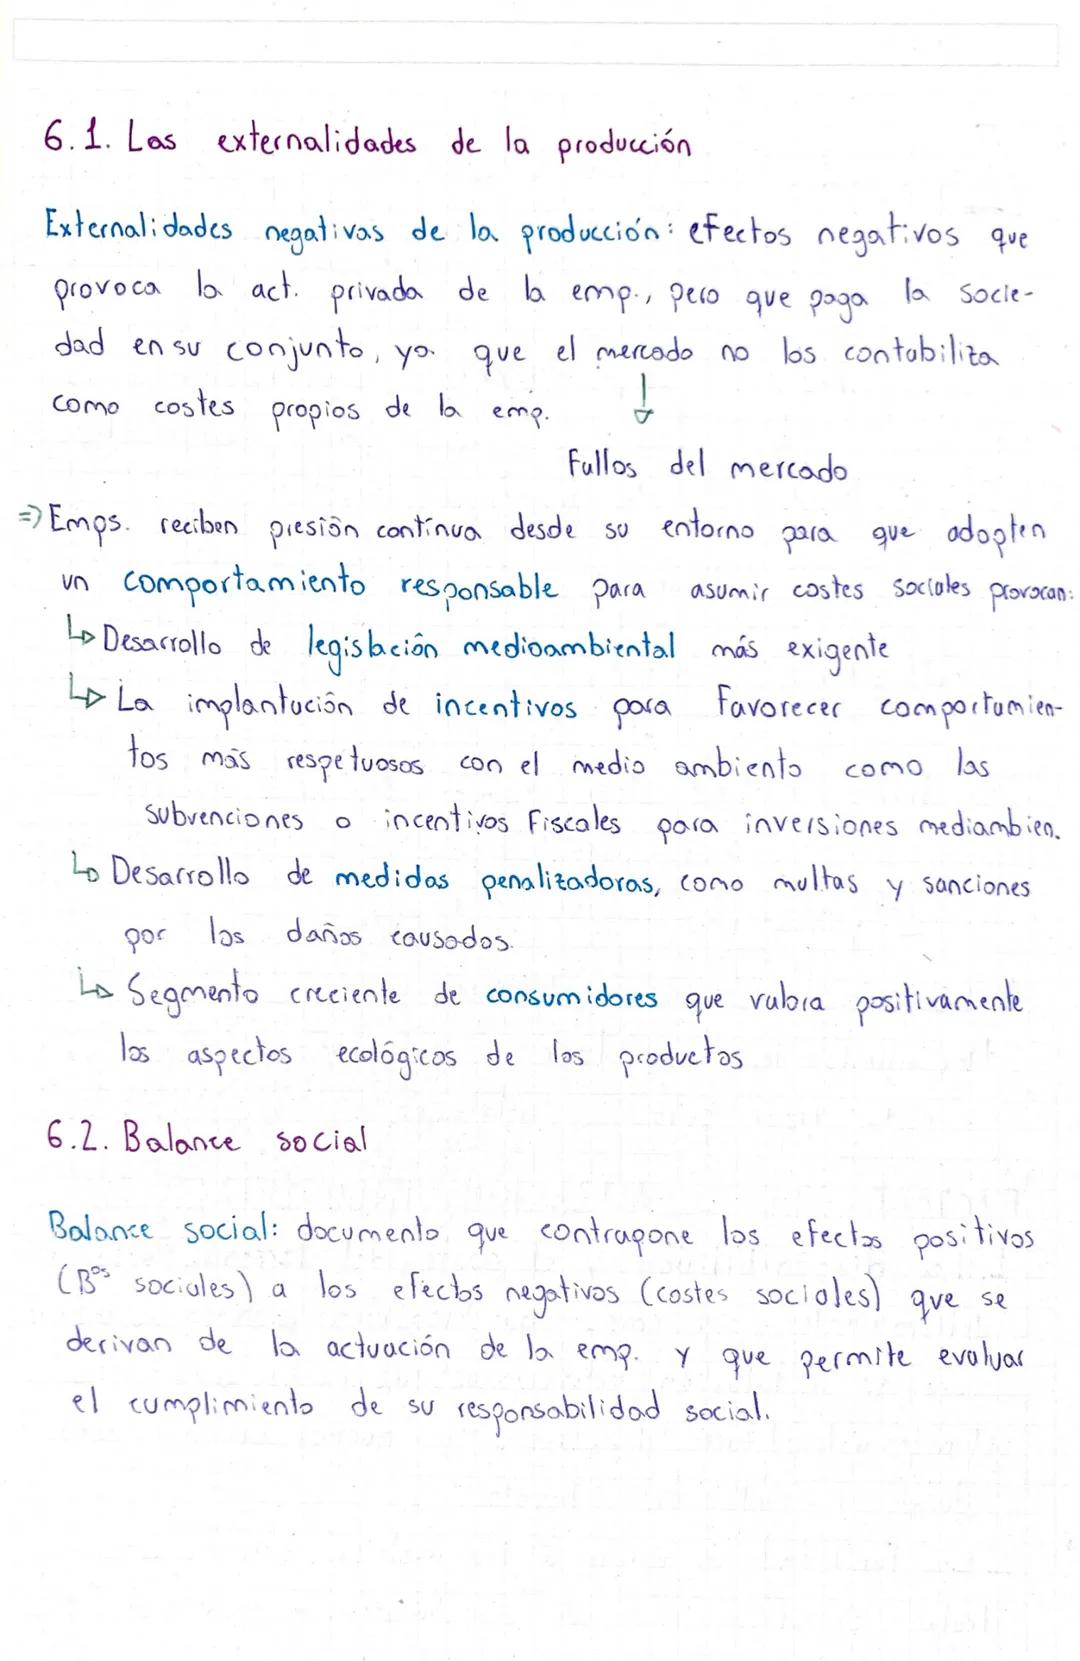 6.1. Las externalidades de la producción
Externalidades negativas de la producción: efectos negativos que
provoca la act. privada de la emp., pero que paga la socie-
dad en su conjunto, ya que el mercado no los contabiliza
como costes propios de la emp. ↓
Fallos del mercado
⇒ Emps. reciben presión contínua desde su entorno para que adopten
un comportamiento responsable para asumir costes sociales provocan:
↳ Desarrollo de legislación medioambiental más exigente
↳ La implantación de incentivos para favorecer comportamien-
tos más respetuosos con el medio ambiento como las
subvenciones o incentivos fiscales para inversiones mediambien.
↳ Desarrollo de medidas penalizadoras, como multas y sanciones
por los daños causados.
↳ Segmento creciente de consumidores que valora positivamente
los aspectos ecológicos de los productos
6.2. Balance social
Balance social: documento que contrapone los efectos positivos
(Bºs sociales) a los efectos negativos (costes sociales) que se
derivan de la actuación de la emp. y que permite evaluar
el cumplimiento de su responsabilidad social.